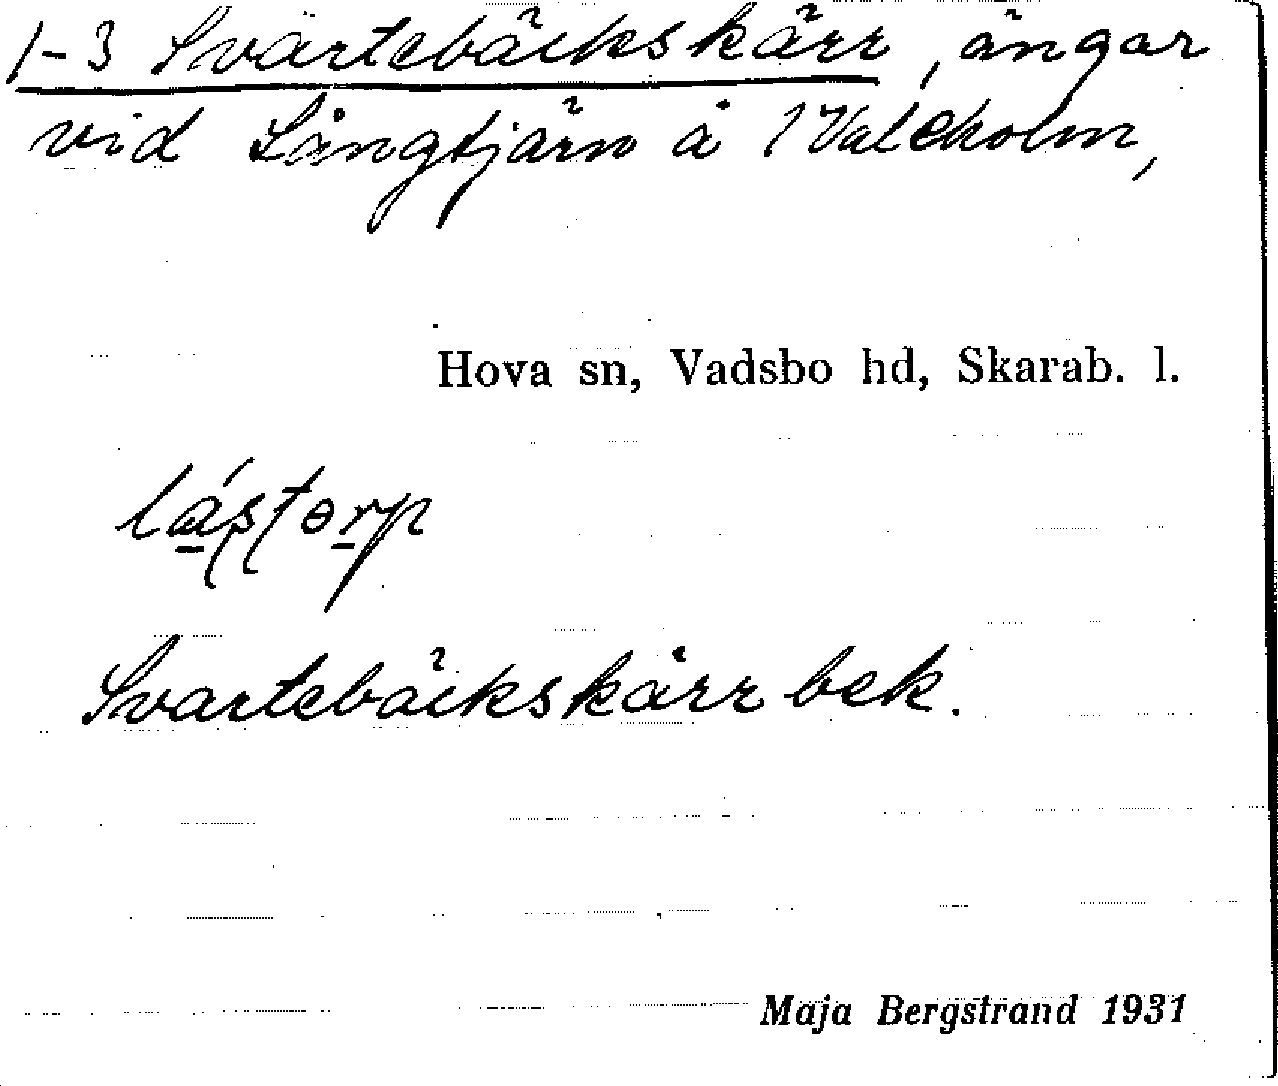 1-3 Svartebäckskärr, ängar
vid Långtjärn å 1 Valekolm,
Hova sn, Vadsbo hd, Skarab. l.
Svartebäckskärr bek.
Maja Bergstrand 1931